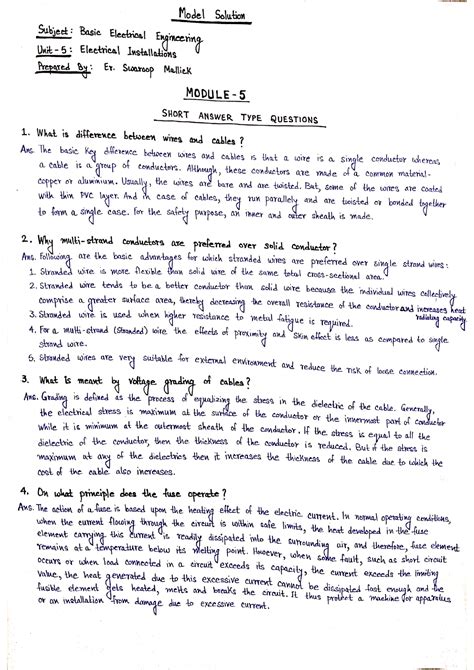 Model Solution
Subject: Basic Electrical Engineering
Unit-5: Electrical Installations
Prepared By: Er. Swaroop Mallick
MODULE-5
SHORT ANSWER TYPE QUESTIONS
1. What is difference between wires and cables?
Ans. The basic key difference between wires and cables is that a wire is a single conductor whereas
a cable is a group of conductors. Although, these conductors are made of a common material-
copper or aluminium. Usually, the wires are bare and are twisted. But, some of the wires are coated
with thin PVC layer. And in case of cables, they run parallely and are twisted or bonded together
to form a single case. For the safety purpose, an inner and outer sheath is made.
2. Why multi-strand conductors are preferred over solid conductor?
Ans. Following are the basic advantages for which stranded wires are preferred over single strand wires:
1. Stranded wire is more flexible than solid wire of the same total cross-sectional area.
2. Stranded wire tends to be a better conductor than solid wire because the individual wires collectively
comprise a greater surface area, thereby decreasing the overall resistance of the conductor and increases heat
radiating capacity
3. Stranded wire is used when higher resistance to metal fatigue is required.
4. For a multi-strand (Stranded) wire the effects of proximity and skin effect is less as compared to single
strand wire.
5. Stranded wires are very suitable for external environment and reduce the risk of loose connection.
3. What is meant by voltage grading of cables?
Ans. Grading is defined as the process of equalizing the stress in the dielectric of the cable. Generally,
the electrical stress is maximum at the surface of the conductor or the innermost part of conductor
while it is minimum at the outermost sheath of the conductor. If the stress is equal to all the
dielectric of the conductor, then the thickness of the conductor is reduced. But if the stress is
maximum at any of the dielectrics then it increases the thickness of the cable due to which the
cost of the cable also increases.
4. On what principle does the fuse operate?
Ans. The action of a fuse is based upon the heating effect of the electric current. In normal operating conditions,
when the current flowing through the circuit is within safe limits, the heat developed in the fuse
element carrying this current is readily dissipated into the surrounding air, and therefore, fuse element
remains at a temperature below its melting point. However, when some fault, such as short circuit
occurs or when load connected in a circuit exceeds its capacity, the current exceeds the limiting
value, the heat generated due to this excessive current cannot be dissipated fast enough and the
fusible element gets heated, melts and breaks the circuit. It thus protect a machine or apparatus
or an installation from damage due to excessive current.